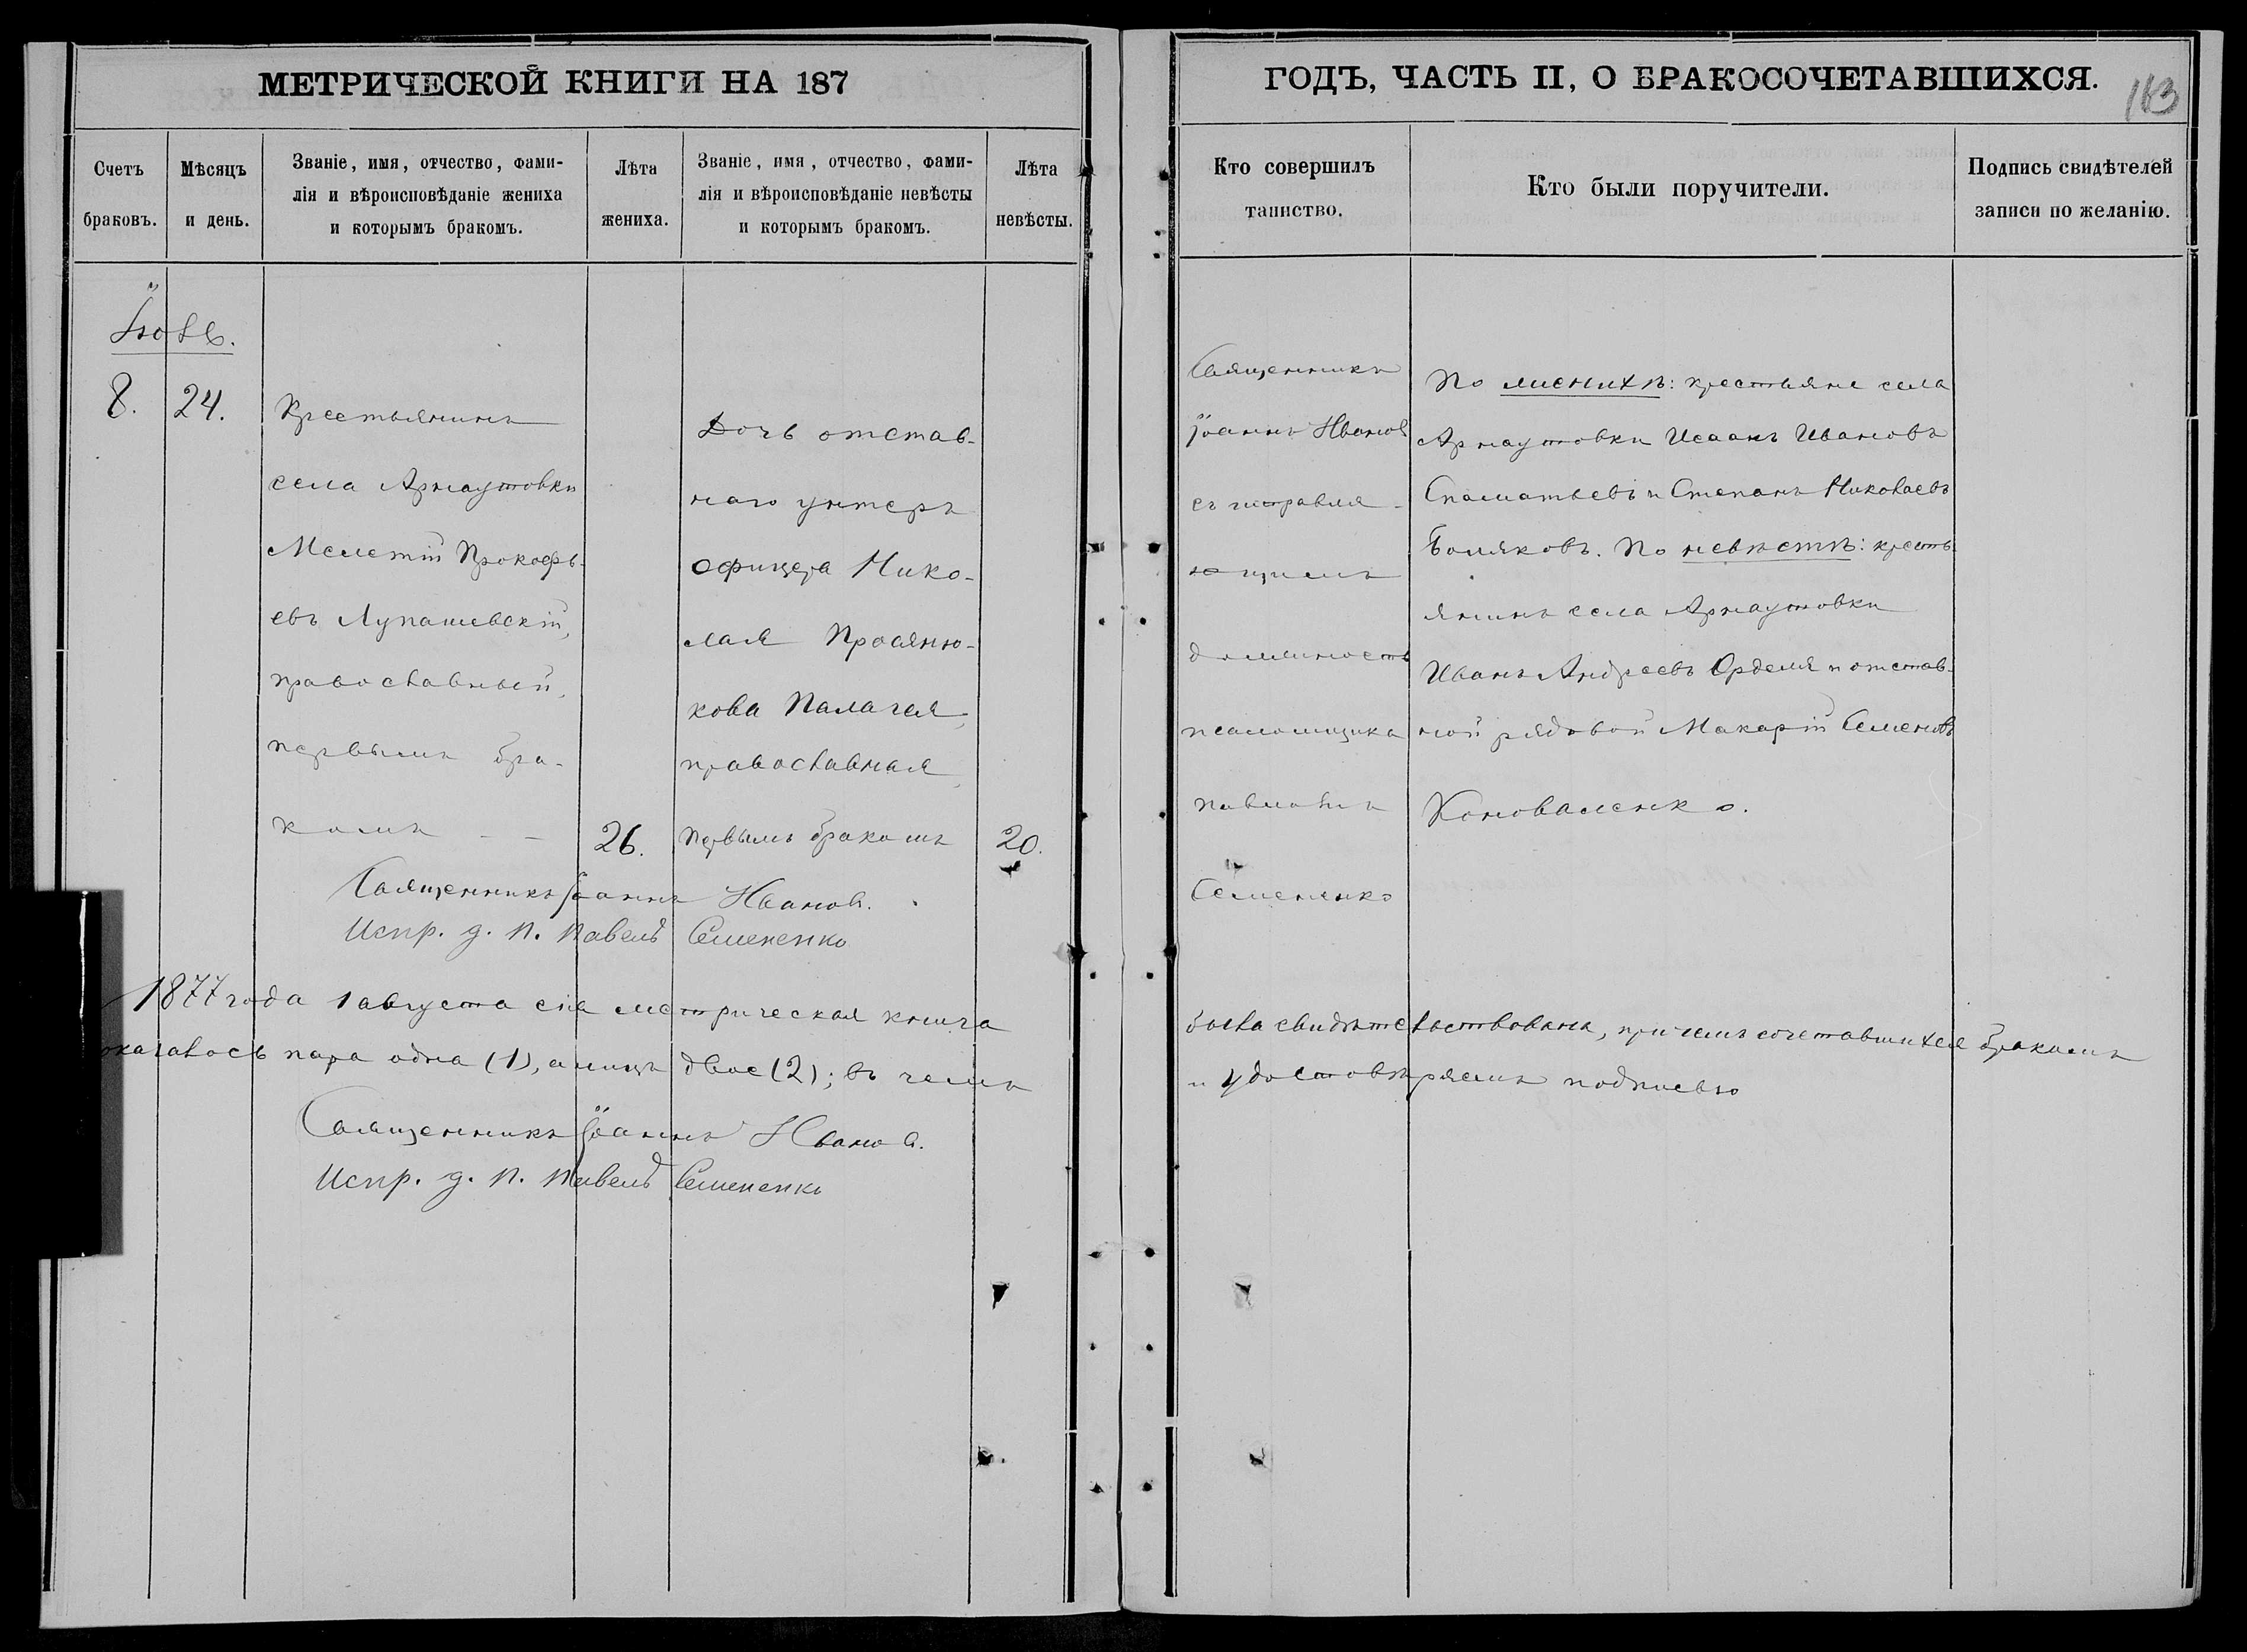 МЕТРИЧЕСКОЙ КНИГИ НА 187
Счетъ браковъ.
Мѣсяцъ и день.
Званіе, имя, отчество, фами-
лія и вѣроисповѣданіе жениха
и которымъ бракомъ.
Лѣта жениха.
Званіе, имя, отчество, фами-
лія и вѣроисповѣданіе невѣсты
и которымъ бракомъ.
Лѣта невѣсты.
Іюль.
8.
24.
Крестьянинъ
села Арнаутовки
Мелетій Прокофь-
евъ Лупашевскій,
православный,
первымъ бра-
комъ - -
26.
Дочь отстав-
наго унтеръ
офицера Нико-
лая Просяню-
кова Палагея,
православная,
первымъ бракомъ
20.
Священникъ Іоаннъ Иванов.
Испр. д. п. Павелъ Семененко
ГОДЪ, ЧАСТЬ II, О БРАКОСОЧЕТАВШИХСЯ.
163
Кто совершилъ
таинство.
Кто были поручители.
Подпись свидѣтелей
записи по желанію.
Священникъ
Іоаннъ Иванов
съ исправля-
ющимъ
должность
псаломщика
Павломъ
Семененко
По женихѣ: крестьяне села
Арнаутовки Исаакъ Ивановъ
и Степанъ Николаевъ
Поляковъ. По невѣстѣ: кресть-
янинъ села Арнаутовки
Иванъ Андреевъ и отстав-
ной рядовой Макарій Семеновъ
Коноваленко.
1877 года 1 августа сія метрическая книга была свидѣтельствована, при чемъ сочетавшихся бракомъ
оказалось пара одна (1), а лицъ двое (2); въ чемъ и удостовѣряемъ подписью
Священникъ Іоаннъ Иванов.
Испр. д. п. Павелъ Семененко